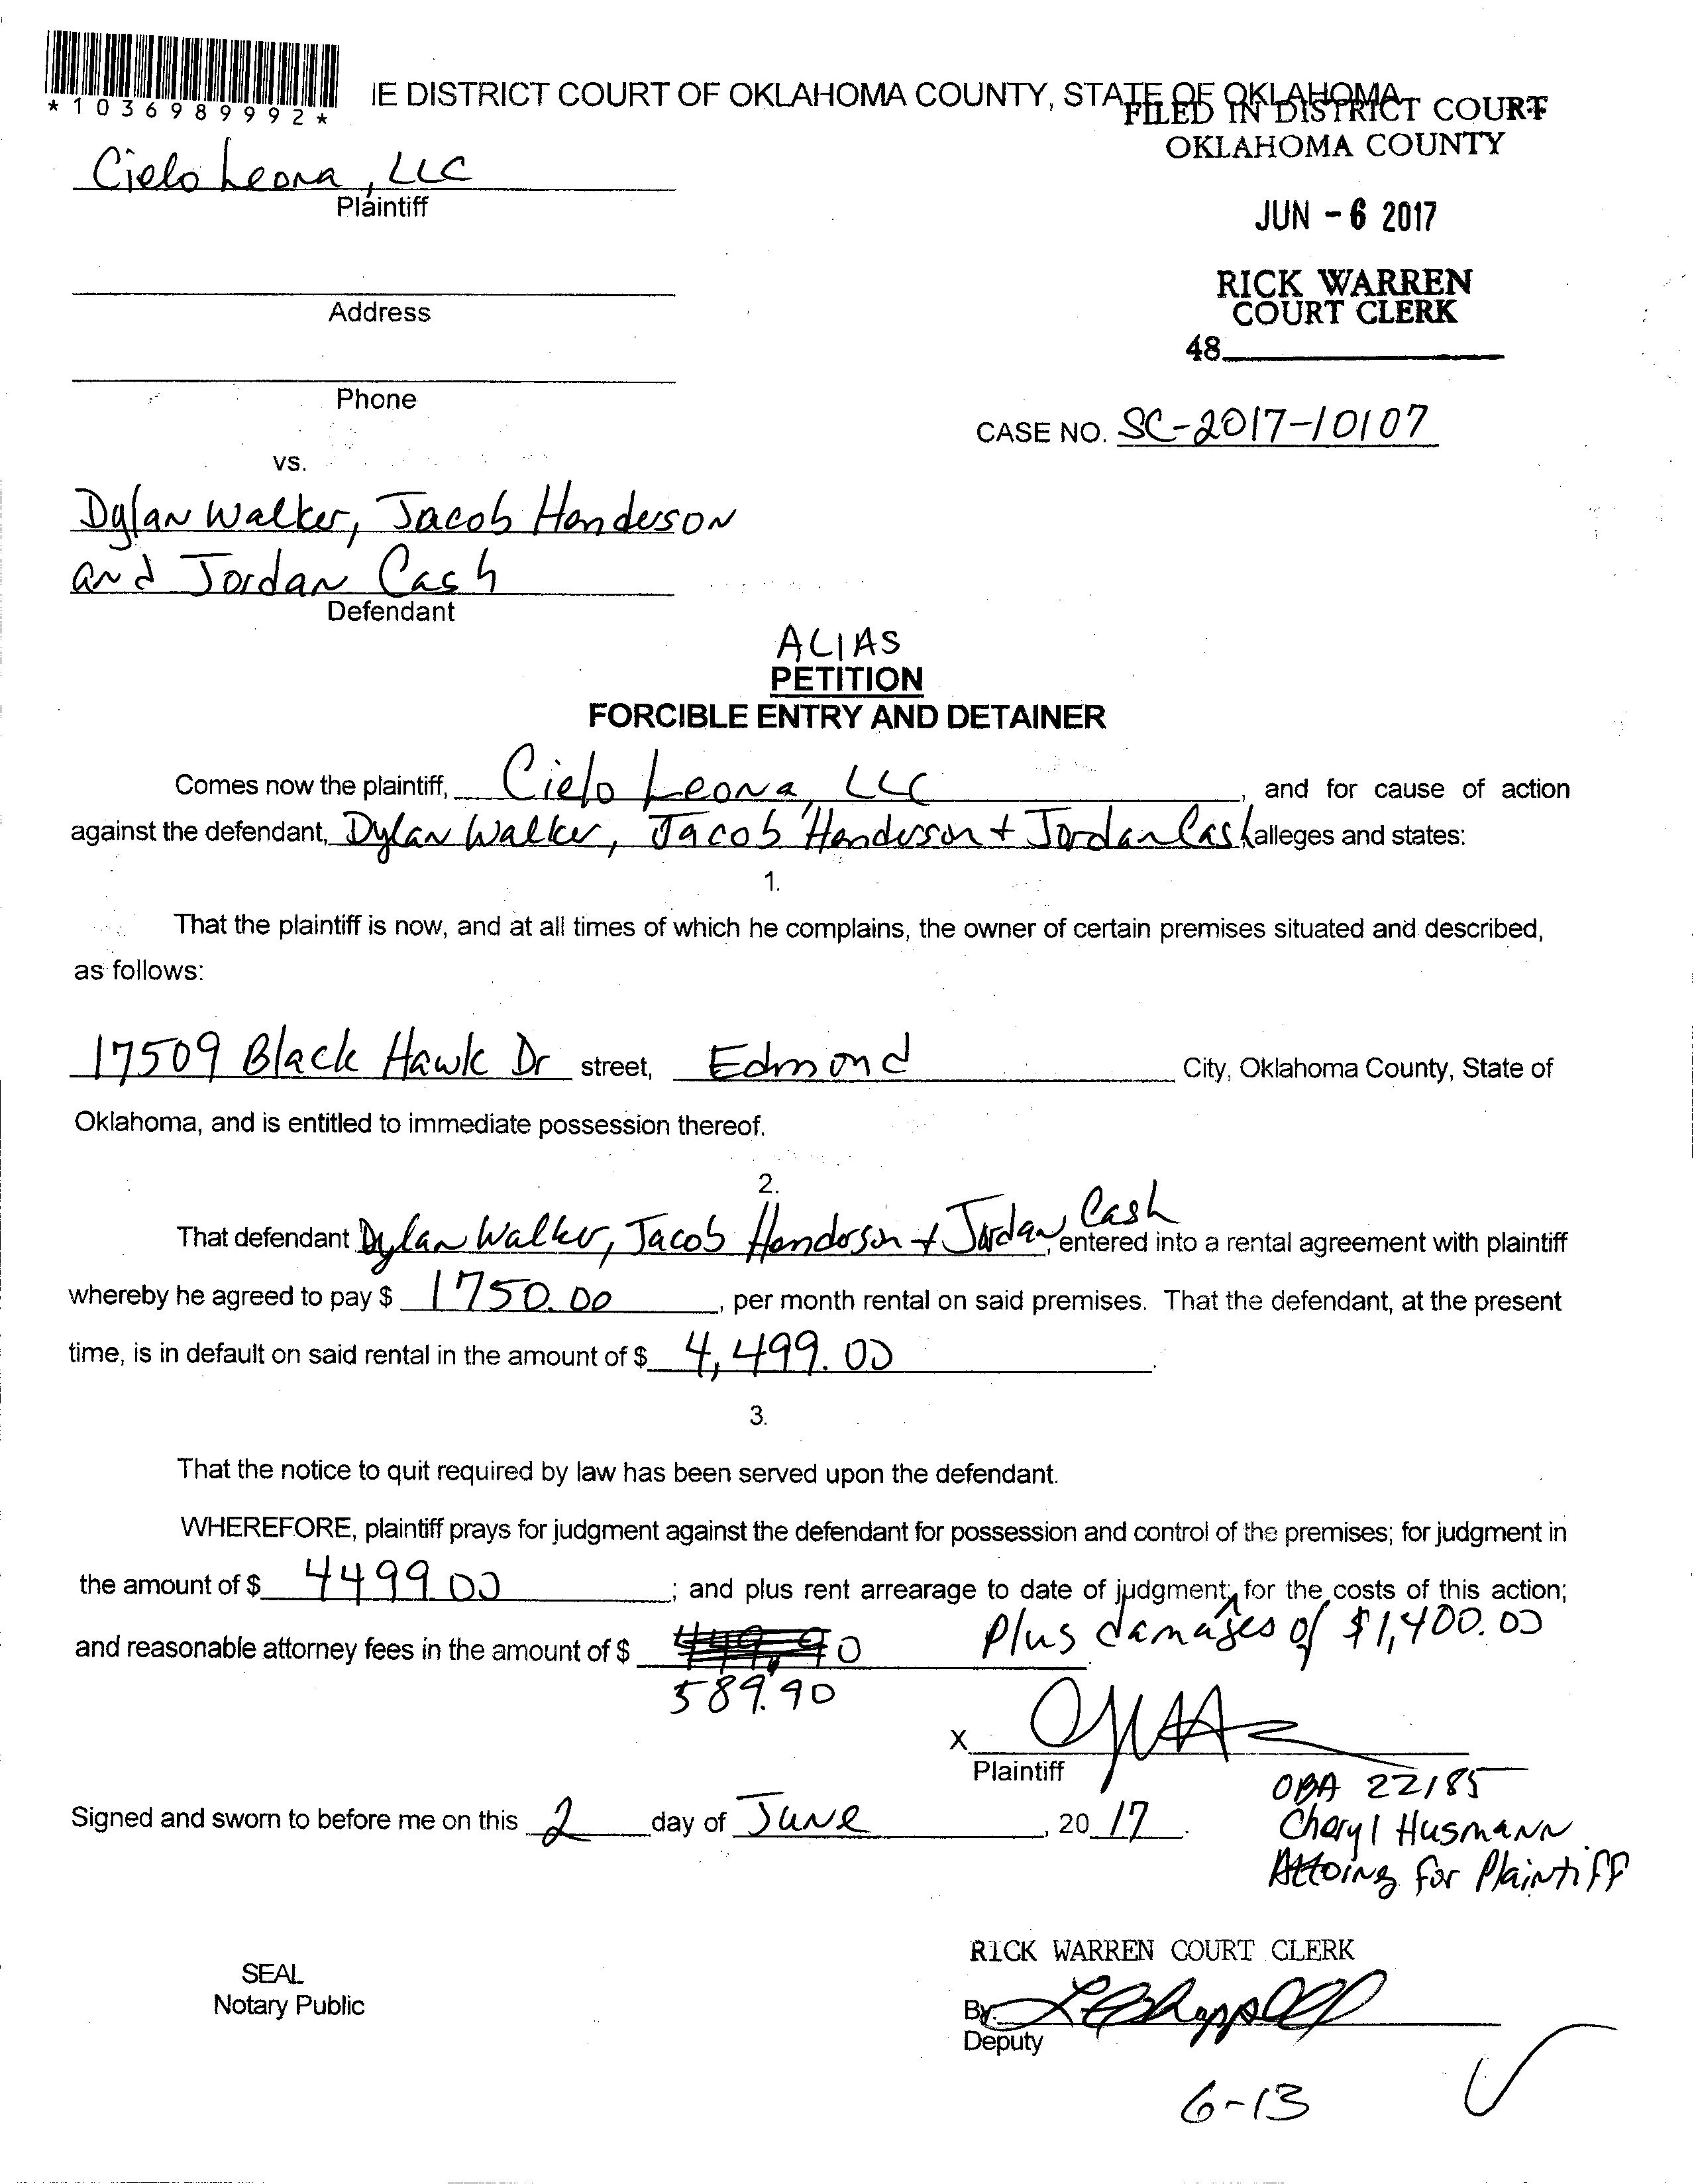 *1036989992*
IE DISTRICT COURT OF OKLAHOMA COUNTY, STATE OF OKLAHOMA
FILED IN DISTRICT COURT
OKLAHOMA COUNTY
Cielo Leona, LLC
Plaintiff
JUN - 6 2017
Address
RICK WARREN
COURT CLERK
48
Phone
CASE NO. SC-2017-10107
vs.
Dylan Walker, Jacob Henderson
and Jordan Cash
Defendant
ALIAS
PETITION
FORCIBLE ENTRY AND DETAINER
Comes now the plaintiff, Cielo Leona, LLC, and for cause of action
against the defendant, Dylan Walker, Jacob Henderson + Jordan Cash alleges and states:
1.
That the plaintiff is now, and at all times of which he complains, the owner of certain premises situated and described,
as follows:
17509 Black Hawk Dr street, Edmond City, Oklahoma County, State of
Oklahoma, and is entitled to immediate possession thereof.
2.
That defendant Dylan Walker, Jacob Henderson + Jordan Cash, entered into a rental agreement with plaintiff
whereby he agreed to pay $ 1750.00, per month rental on said premises. That the defendant, at the present
time, is in default on said rental in the amount of $ 4,499.00.
3.
That the notice to quit required by law has been served upon the defendant.
WHEREFORE, plaintiff prays for judgment against the defendant for possession and control of the premises; for judgment in
the amount of $ 4499.00; and plus rent arrearage to date of judgment; for the costs of this action;
Plus damages of $1,400.00
and reasonable attorney fees in the amount of $ 449.90
589.90
X
Plaintiff
OBA 22185
Signed and sworn to before me on this 2 day of June, 20 17.
Cheryl Husmann
Attoing for Plaintiff
RICK WARREN COURT CLERK
SEAL
Notary Public
By
Deputy
6-13